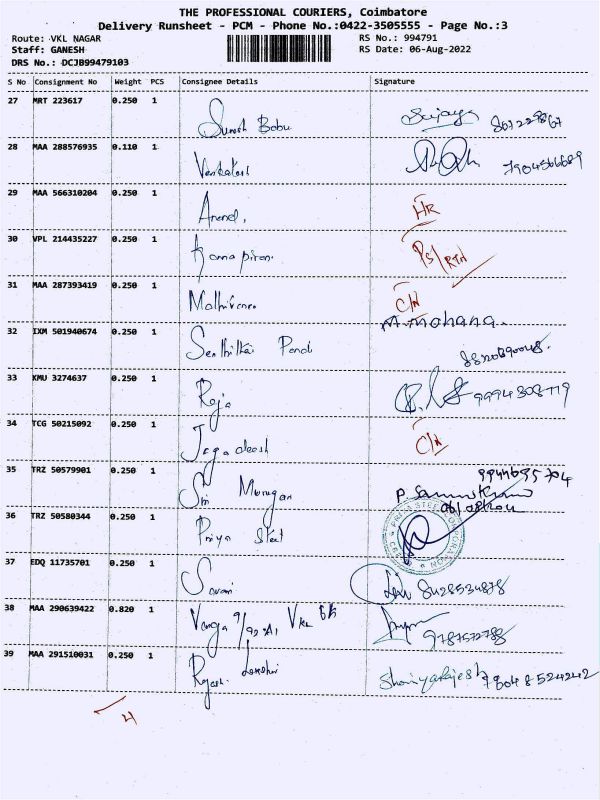 THE PROFESSIONAL COURIERS, Coimbatore
Delivery Runsheet - PCM - Phone No.:0422-3505555 - Page No.:3
Route: VKL NAGAR
RS No.: 994791
Staff: GANESH
RS Date: 06-Aug-2022
DRS No.: DCJB99479103
S No Consignment No Weight PCS Consignee Details Signature
27 MRT 223617 0.250 1 Suresh Babu
28 MAA 288576935 0.110 1 Venkatesh
29 MAA 566310204 0.250 1 Anand. HR
30 VPL 214435227 0.250 1 PS/RTN
31 MAA 287393419 0.250 1 C/N
M. Mohana.
32 IXM 501940674 0.250 1
33 KMU 3274637 0.250 1 Raja
34 TCG 50215092 0.250 1 Jagadeesh C/N
35 TRZ 50579901 0.250 1 Sri Murugan 9944695704
36 TRZ 50580344 0.250 1 Priya Steel
37 EDQ 11735701 0.250 1 8428534878
38 MAA 290639422 0.820 1 9787572788
39 MAA 291510031 0.250 1 Rajesh
4